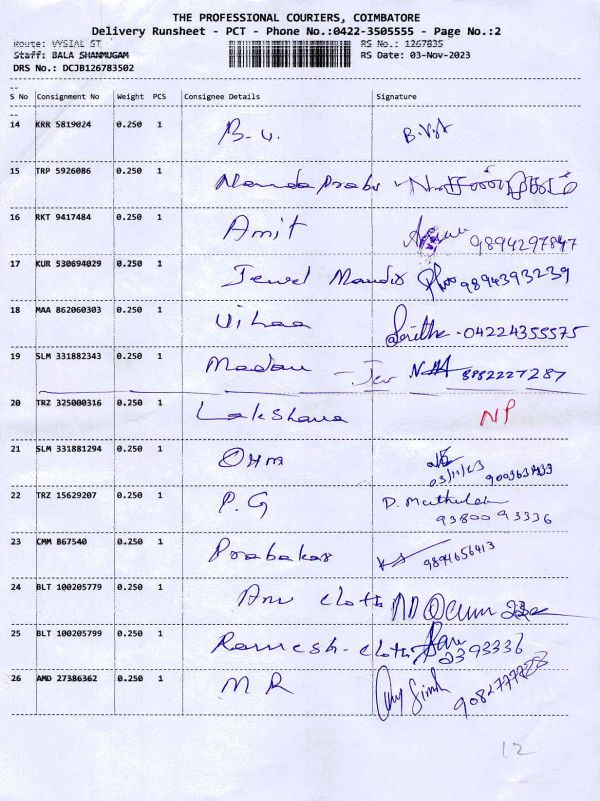 THE PROFESSIONAL COURIERS, COIMBATORE
Delivery Runsheet - PCT - Phone No.:0422-3505555 - Page No.:2
Route: VYSIAL ST RS No.: 1267835
Staff: BALA SHANMUGAM RS Date: 03-Nov-2023
DRS No.: DCJB126783502
S No Consignment No Weight PCS Consignee Details Signature
14 KRR 5819024 0.250 1 B.V. B.Vijt
15 TRP 5926086 0.250 1 Nanda Prabu
16 RKT 9417484 0.250 1 Amit 9894297847
17 KUR 530694029 0.250 1 Jewel Mandir 9894393239
18 MAA 862060303 0.250 1 Vihaa 04224355575
19 SLM 331882343 0.250 1 Madau - Jew 8882227287
20 TRZ 325000316 0.250 1 Lakshana NP
21 SLM 331881294 0.250 1 OHM
03/11/23
22 TRZ 15629207 0.250 1 P.G D. Muthulak
93800 93336
23 CMM 867540 0.250 1 Prabakar 9894656413
24 BLT 100205779 0.250 1 cloth
25 BLT 100205799 0.250 1 Ramesh - cloth
2393336
26 AMD 27386362 0.250 1 M R Singh
12